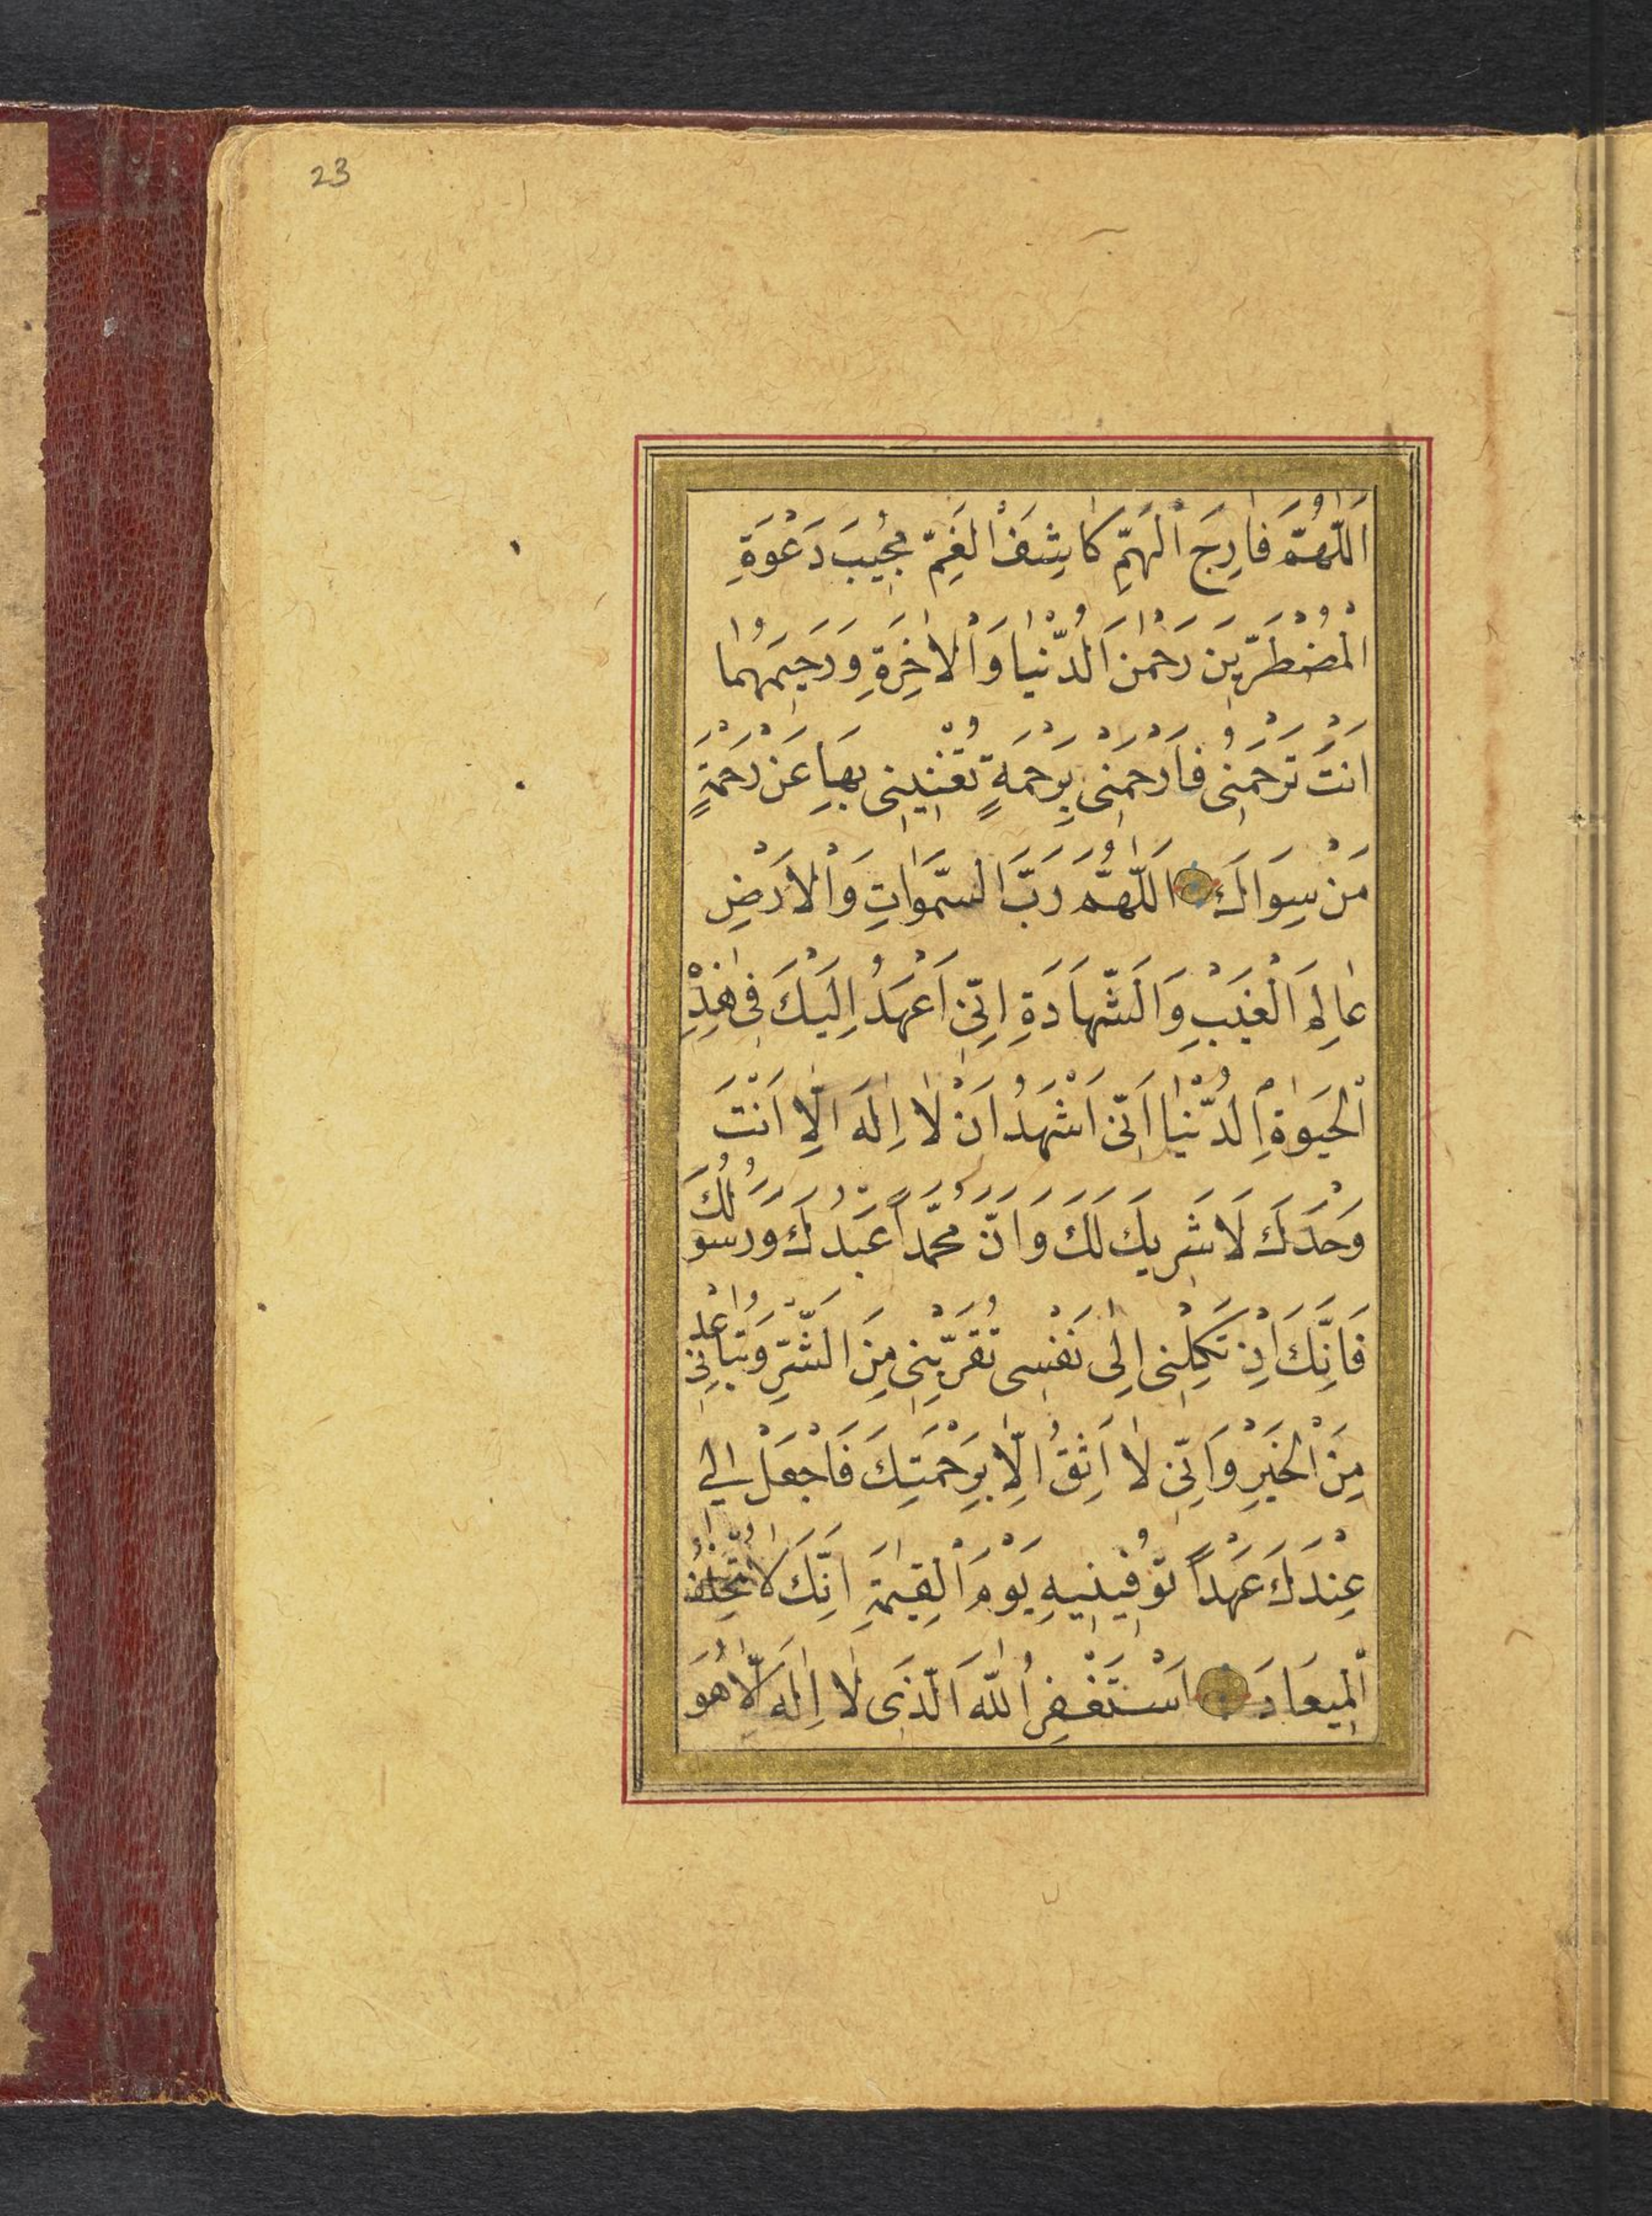 23
اَللّٰهُمَّ فَارِجَ الْهَمِّ كَاشِفَ الْغَمِّ مُجِيبَ دَعْوَةِ
الْمُضْطَرِّينَ رَحْمٰنَ الدُّنْيَا وَالْاٰخِرَةِ وَرَحِيمَهُمَا
اَنْتَ تَرْحَمُنِى فَارْحَمْنِى بِرَحْمَةٍ تُغْنِينِى بِهَا عَنْ رَحْمَةٍ
مَنْ سِوَاكَ اَللّٰهُمَّ رَبَّ السَّمٰوَاتِ وَالْاَرْضِ
عَالِمَ الْغَيْبِ وَالشَّهَادَةِ اِنِّى اَعْهَدُ اِلَيْكَ فِى هٰذِهِ
الْحَيٰوةِ الدُّنْيَا اَنِّى اَشْهَدُ اَنْ لَا اِلٰهَ اِلَّا اَنْتَ
وَحْدَكَ لَا شَرِيكَ لَكَ وَاَنَّ مُحَمَّدًا عَبْدُكَ وَرَسُولُكَ
فَاِنَّكَ اِنْ تَكِلْنِى اِلٰى نَفْسِى تُقَرِّبْنِى مِنَ الشَّرِّ وَتُبَاعِدْنِى
مِنَ الْخَيْرِ وَاِنِّى لَا اَثِقُ اِلَّا بِرَحْمَتِكَ فَاجْعَلْ لِى
عِنْدَكَ عَهْدًا تُوَفِّينِيهِ يَوْمَ الْقِيٰمَةِ اِنَّكَ لَا تُخْلِفُ
الْمِيعَادَ اَسْتَغْفِرُ اللّٰهَ الَّذِى لَا اِلٰهَ اِلَّا هُوَ